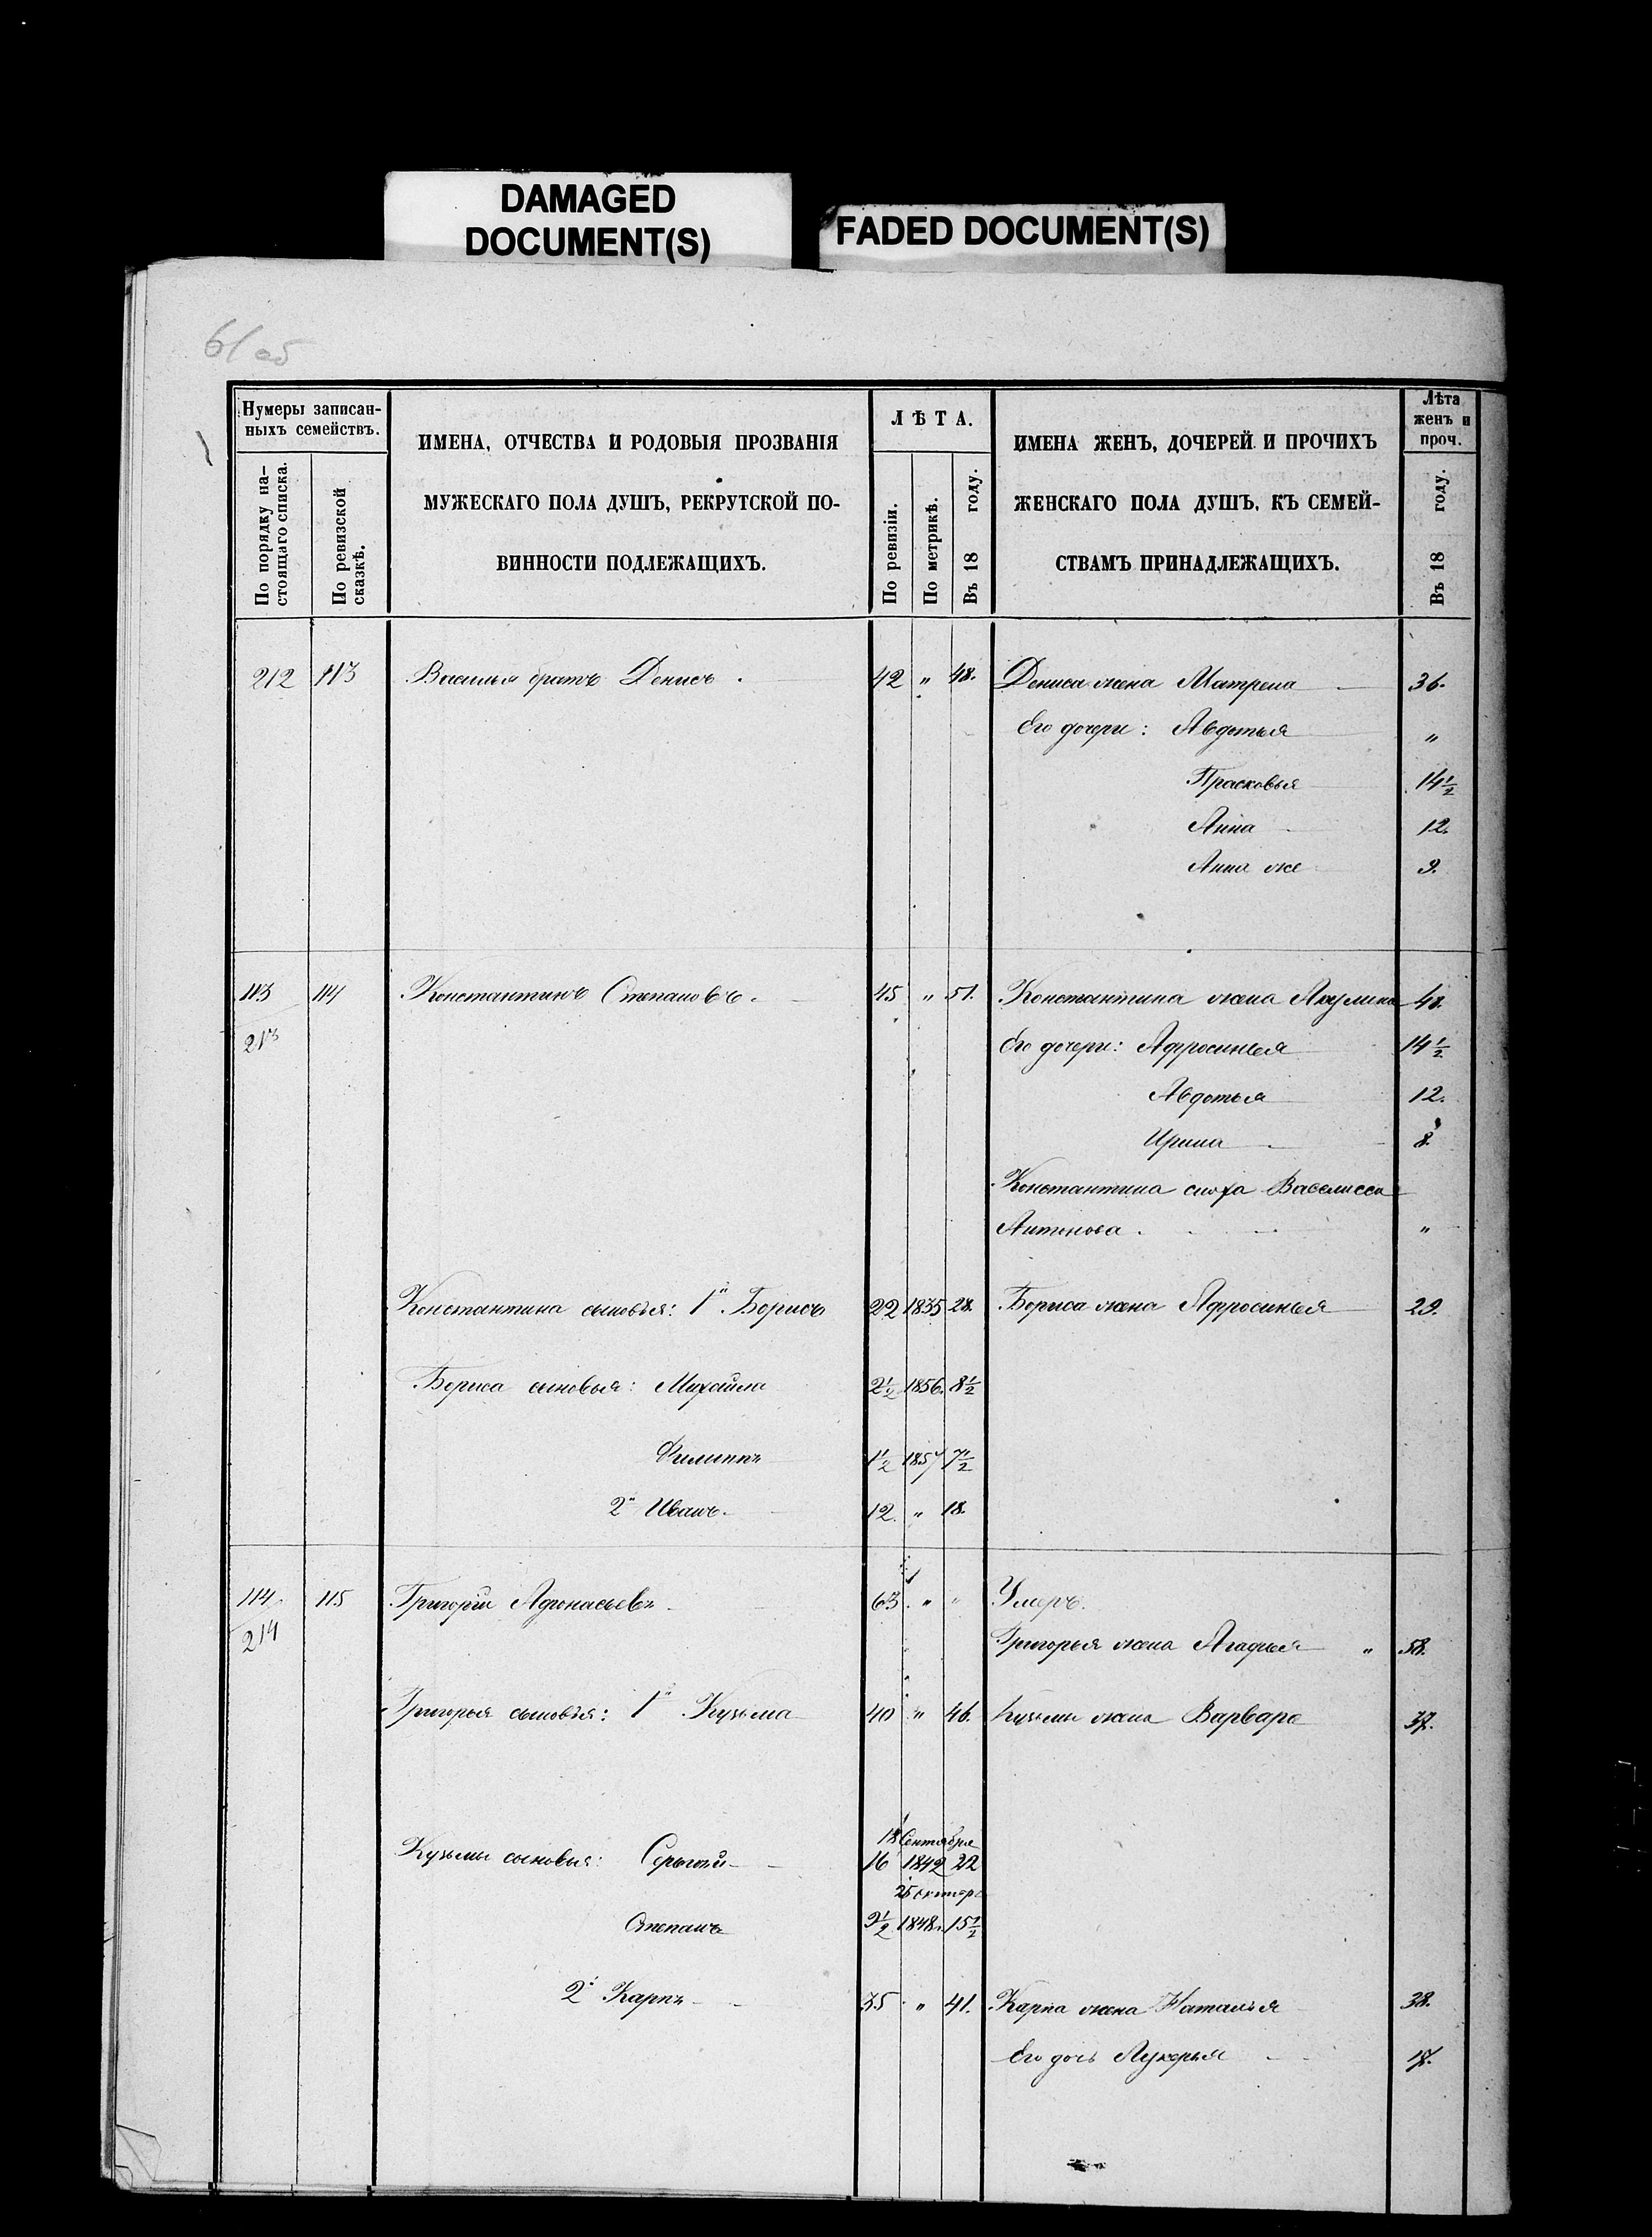 DAMAGED
DOCUMENT(S)
FADED DOCUMENT(S)
61 об
Нумеры записан-
ныхъ семействъ.
По порядку на-
стоящаго списка.
По ревизской
сказкѣ.
ИМЕНА, ОТЧЕСТВА И РОДОВЫЯ ПРОЗВАНІЯ
МУЖЕСКАГО ПОЛА ДУШЪ, РЕКРУТСКОЙ ПО-
ВИННОСТИ ПОДЛЕЖАЩИХЪ.
ЛѢТА.
По ревизіи.
По метрикѣ.
Въ 18 году.
ИМЕНА ЖЕНЪ, ДОЧЕРЕЙ И ПРОЧИХЪ
ЖЕНСКАГО ПОЛА ДУШЪ, КЪ СЕМЕЙ-
СТВАМЪ ПРИНАДЛЕЖАЩИХЪ.
Лѣта
женъ и
проч.
Въ 18 году.
212 113 Василья братъ Денисъ . 42 " 48. Дениса жена Матрена 36.
Его дочери: Авдотья "
Прасковья 14 1/2
Анна 12.
Анна же 9.
113 114 Константинъ Степановъ. 45 " 51. Константина жена Акулина 48.
213 Его дочери: Афросинья 14 1/2
Авдотья 12.
Ирина 8.
Константина сноха Василисса
Антонова. "
Константина сыновья: 1й Борисъ 22 1835 28. Бориса жена Афросинья 29.
Бориса сыновья: Михайла 2 1/2 1856. 8 1/2
Филиппъ 1 1/2 1857 7 1/2
2й Иванъ. 12. " 18.
114. 115 Григорій Афонасьевъ 63. " " Умеръ.
214 Григорья жена Агафья " 58.
Григорья сыновья: 1й Кузьма 40 " 46. Кузьмы жена Варвара 37.
18 Сентября
Кузьмы сыновья: Сергѣй 16 1842 22
25 октяб
Степанъ 9 1/2 1848. 15 1/2
2й Карпъ 35 " 41. Карпа жена Наталья 38.
Его дочь Лукерья 17.